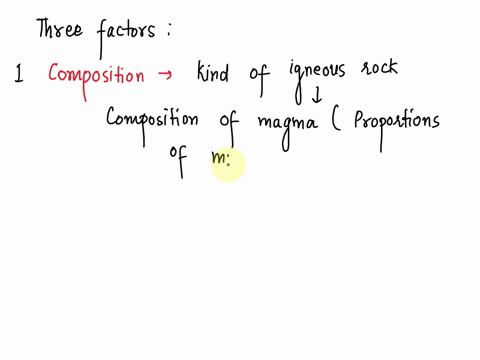 Three factors :
1 Composition → kind of igneous rock
↓
Composition of magma ( Proportions
of m: